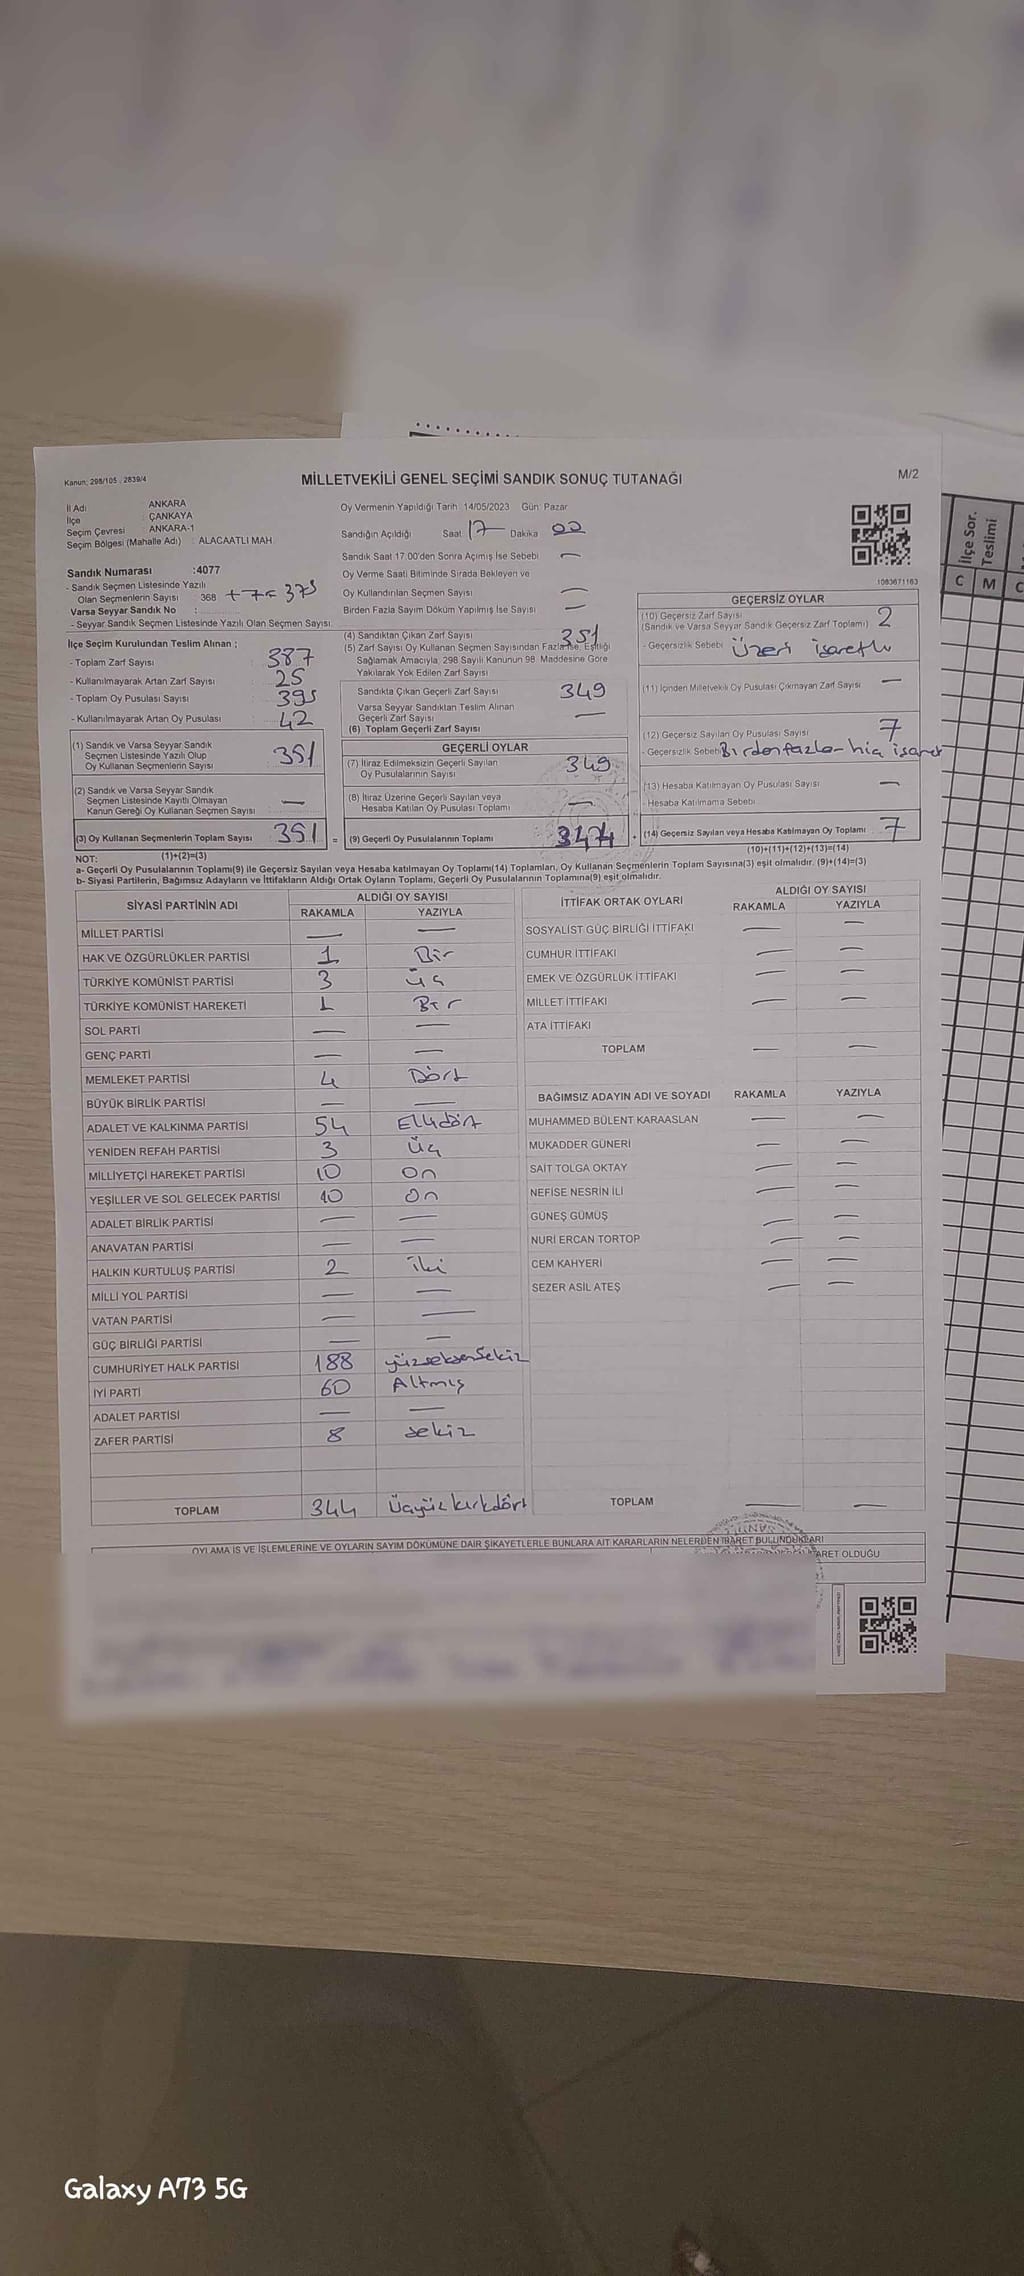 Kanun: 298/105 - 2839/4
MİLLETVEKİLİ GENEL SEÇİMİ SANDIK SONUÇ TUTANAĞI
M/2
İl Adı : ANKARA
İlçe : ÇANKAYA
Seçim Çevresi : ANKARA-1
Seçim Bölgesi (Mahalle Adı) : ALACAATLI MAH.
Sandık Numarası :4077
- Sandık Seçmen Listesinde Yazılı
Olan Seçmenlerin Sayısı : 368 +7= 375
Varsa Seyyar Sandık No :
- Seyyar Sandık Seçmen Listesinde Yazılı Olan Seçmen Sayısı:
Oy Vermenin Yapıldığı Tarih: 14/05/2023 Gün: Pazar
Sandığın Açıldığı Saat 17 Dakika 00
Sandık Saat 17.00'den Sonra Açımış İse Sebebi —
Oy Verme Saati Bitiminde Sırada Bekleyen ve
Oy Kullandırılan Seçmen Sayısı —
Birden Fazla Sayım Döküm Yapılmış İse Sayısı —
1083671163
İlçe Seçim Kurulundan Teslim Alınan ;
- Toplam Zarf Sayısı : 387
- Kullanılmayarak Artan Zarf Sayısı : 25
- Toplam Oy Pusulası Sayısı : 395
- Kullanılmayarak Artan Oy Pusulası : 42
(1) Sandık ve Varsa Seyyar Sandık
Seçmen Listesinde Yazılı Olup
Oy Kullanan Seçmenlerin Sayısı 351
(2) Sandık ve Varsa Seyyar Sandık
Seçmen Listesinde Kayıtlı Olmayan
Kanun Gereği Oy Kullanan Seçmen Sayısı —
(3) Oy Kullanan Seçmenlerin Toplam Sayısı 351 =
(1)+(2)=(3)
(4) Sandıktan Çıkan Zarf Sayısı 351
(5) Zarf Sayısı Oy Kullanan Seçmen Sayısından Fazla ise, Eşitliği
Sağlamak Amacıyla, 298 Sayılı Kanunun 98. Maddesine Göre
Yakılarak Yok Edilen Zarf Sayısı
Sandıkta Çıkan Geçerli Zarf Sayısı 349
Varsa Seyyar Sandıktan Teslim Alınan
Geçerli Zarf Sayısı —
(6) Toplam Geçerli Zarf Sayısı
GEÇERLİ OYLAR
(7) İtiraz Edilmeksizin Geçerli Sayılan
Oy Pusulalarının Sayısı 349
(8) İtiraz Üzerine Geçerli Sayılan veya
Hesaba Katılan Oy Pusulası Toplamı —
(9) Geçerli Oy Pusulalarının Toplamı +
GEÇERSİZ OYLAR
(10) Geçersiz Zarf Sayısı
(Sandık ve Varsa Seyyar Sandık Geçersiz Zarf Toplamı) 2
- Geçersizlik Sebebi Üzeri işaretli
(11) İçinden Milletvekili Oy Pusulası Çıkmayan Zarf Sayısı —
(12) Geçersiz Sayılan Oy Pusulası Sayısı 7
- Geçersizlik Sebebi Birden fazla - hiç işaret
(13) Hesaba Katılmayan Oy Pusulası Sayısı —
- Hesaba Katılmama Sebebi
(14) Geçersiz Sayılan veya Hesaba Katılmayan Oy Toplamı 7
(10)+(11)+(12)+(13)=(14)
NOT:
a- Geçerli Oy Pusulalarının Toplamı(9) ile Geçersiz Sayılan veya Hesaba katılmayan Oy Toplamı(14) Toplamları, Oy Kullanan Seçmenlerin Toplam Sayısına(3) eşit olmalıdır. (9)+(14)=(3)
b- Siyasi Partilerin, Bağımsız Adayların ve İttifakların Aldığı Ortak Oyların Toplamı, Geçerli Oy Pusulalarının Toplamına(9) eşit olmalıdır.
SİYASİ PARTİNİN ADI ALDIĞI OY SAYISI
RAKAMLA YAZIYLA
MİLLET PARTİSİ — —
HAK VE ÖZGÜRLÜKLER PARTİSİ 1 Bir
TÜRKİYE KOMÜNİST PARTİSİ 3 Üç
TÜRKİYE KOMÜNİST HAREKETİ 1 Bir
SOL PARTİ — —
GENÇ PARTİ — —
MEMLEKET PARTİSİ 4 Dört
BÜYÜK BİRLİK PARTİSİ — —
ADALET VE KALKINMA PARTİSİ 54 Ellidört
YENİDEN REFAH PARTİSİ 3 Üç
MİLLİYETÇİ HAREKET PARTİSİ 10 On
YEŞİLLER VE SOL GELECEK PARTİSİ 10 On
ADALET BİRLİK PARTİSİ — —
ANAVATAN PARTİSİ — —
HALKIN KURTULUŞ PARTİSİ 2 İki
MİLLİ YOL PARTİSİ — —
VATAN PARTİSİ — —
GÜÇ BİRLİĞİ PARTİSİ — —
CUMHURİYET HALK PARTİSİ 188 yüzseksensekiz
İYİ PARTİ 60 Altmış
ADALET PARTİSİ — —
ZAFER PARTİSİ 8 sekiz
TOPLAM 344 Üçyüzkırkdört
İTTİFAK ORTAK OYLARI ALDIĞI OY SAYISI
RAKAMLA YAZIYLA
SOSYALİST GÜÇ BİRLİĞİ İTTİFAKI — —
CUMHUR İTTİFAKI — —
EMEK VE ÖZGÜRLÜK İTTİFAKI — —
MİLLET İTTİFAKI — —
ATA İTTİFAKI
TOPLAM — —
BAĞIMSIZ ADAYIN ADI VE SOYADI RAKAMLA YAZIYLA
MUHAMMED BÜLENT KARAASLAN — —
MUKADDER GÜNERİ — —
SAİT TOLGA OKTAY — —
NEFİSE NESRİN İLİ — —
GÜNEŞ GÜMÜŞ — —
NURİ ERCAN TORTOP — —
CEM KAHYERİ — —
SEZER ASİL ATEŞ — —
TOPLAM — —
OYLAMA İŞ VE İŞLEMLERİNE VE OYLARIN SAYIM DÖKÜMÜNE DAİR ŞİKAYETLERLE BUNLARA AİT KARARLARIN NELERDEN İBARET BULUNDUKLARI
ARET OLDUĞU
İlçe Sor.
Teslimi
C M C
Galaxy A73 5G